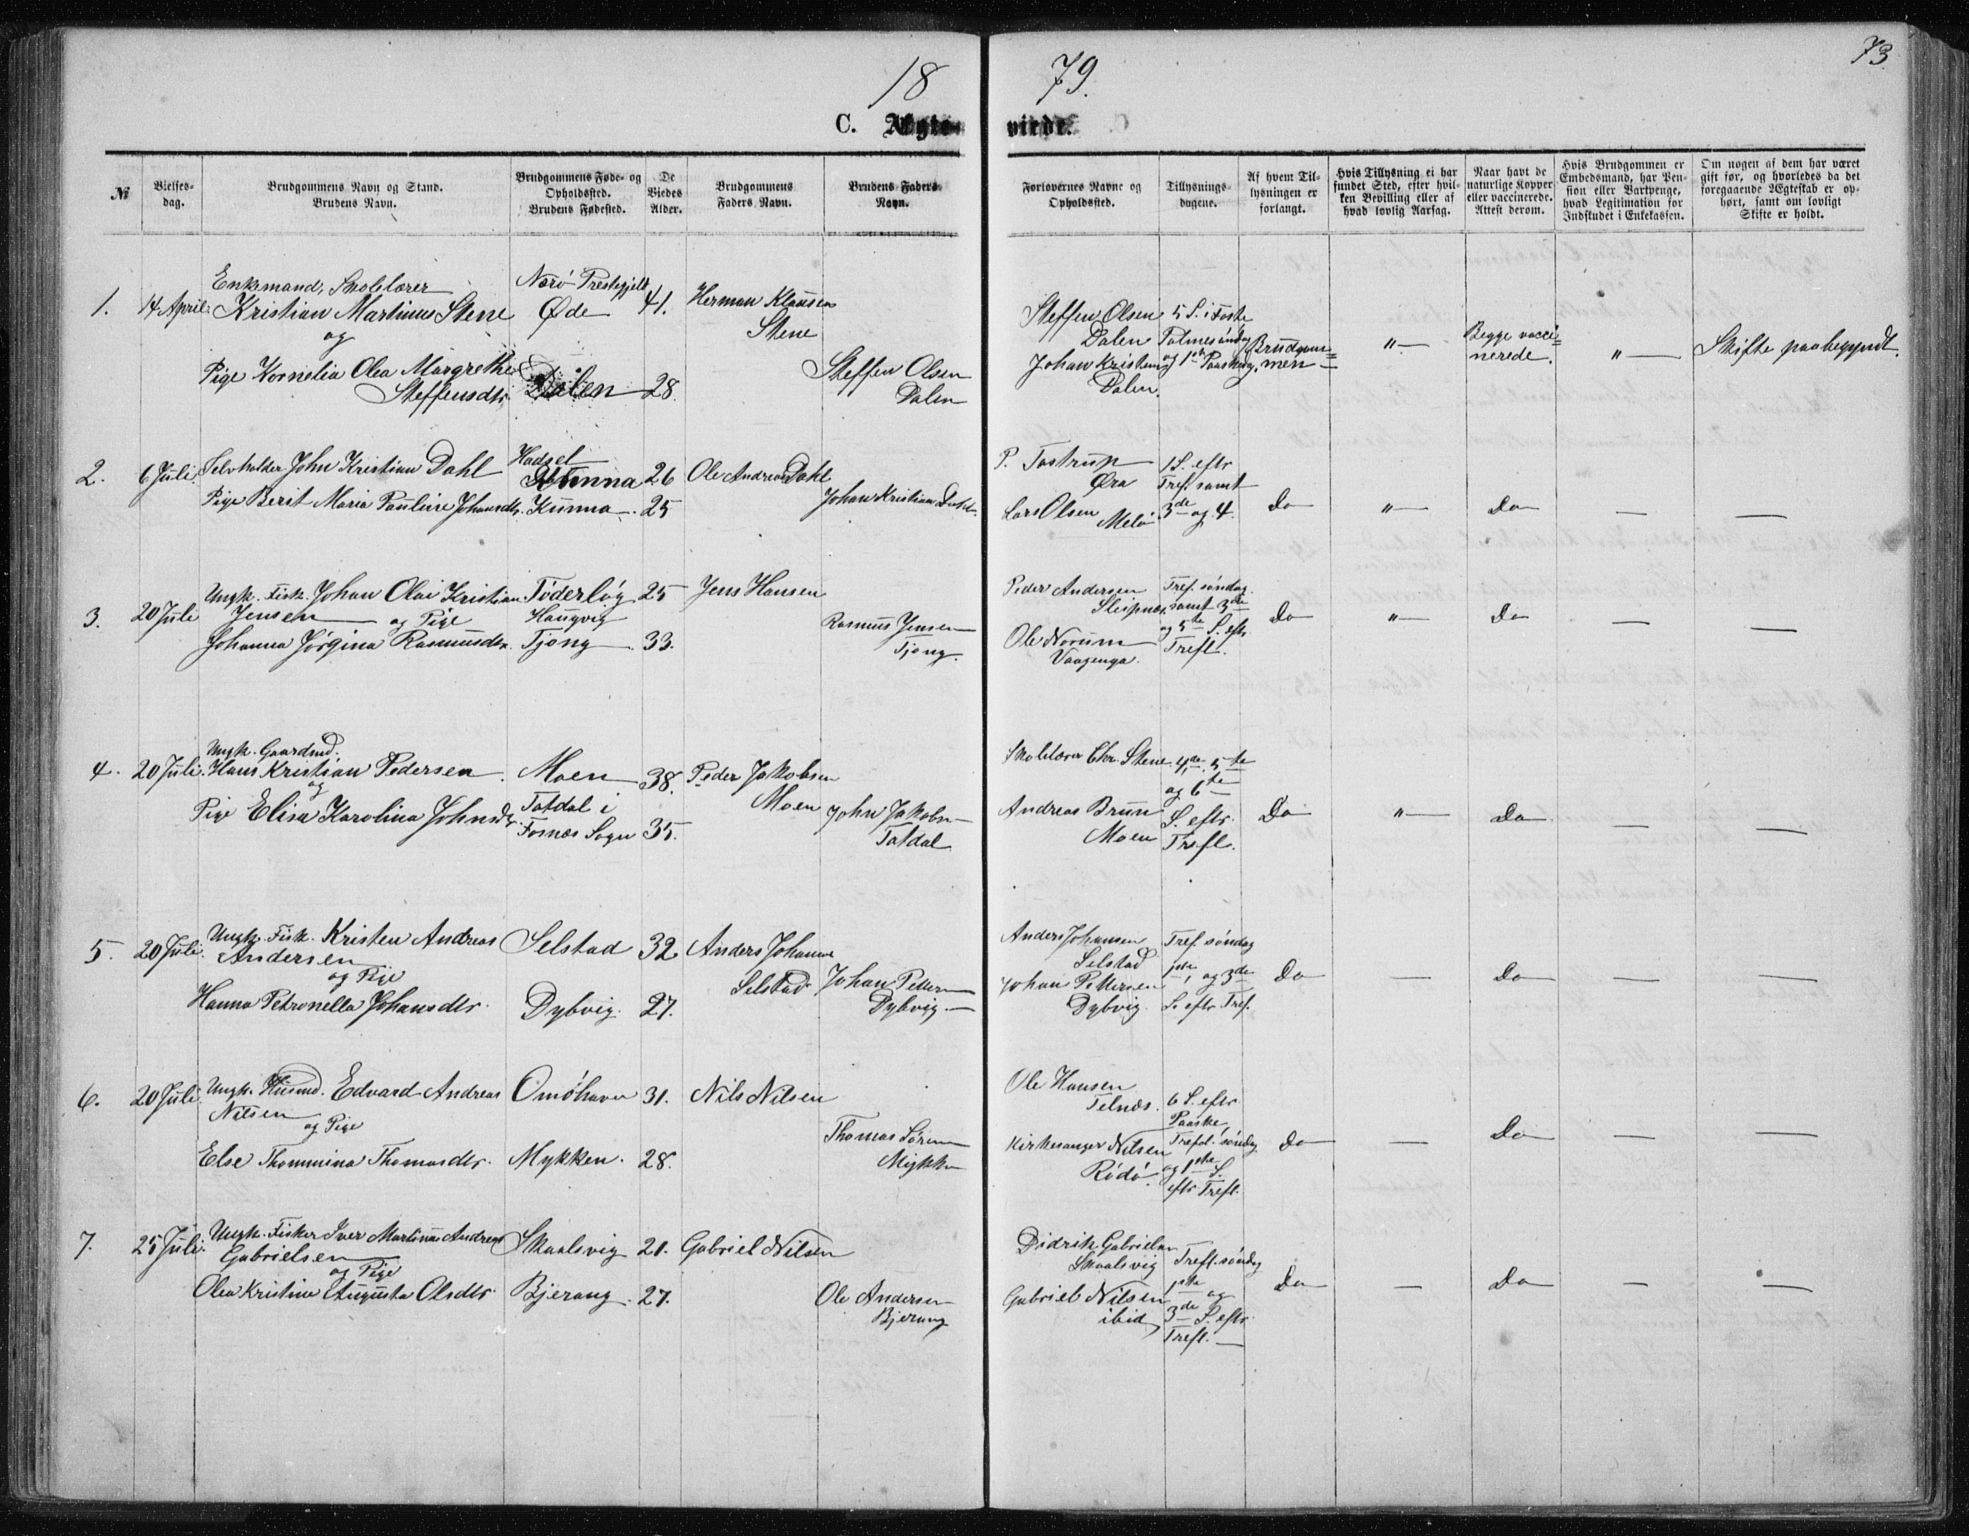 18 79.
73
C. Ægtevirde.
№
Vielsesdag.
Brudgommens Navn og Stand.
Brudens Navn.
Brudgommens Føde- og
Opholdssted.
Brudens Fødested.
De
Viedes
Alder.
Brudgommens
Faders Navn.
Brudens Faders
Navn.
Forlovernes Navne og
Opholdssted.
Tillysnings-
dagene.
Af hvem Til-
lysningen er
forlangt.
Hvis Tillysning ei har
fundet Sted, efter hvil-
ken Bevilling eller af
hvad lovlig Aarsag.
Naar havt de
naturlige Kopper
eller vaccinerede.
Attest derom.
Hvis Brudgommen er
Embedsmand, har Pen-
sion eller Vartpenge,
hvad Legitimation for
Indskudet i Enkekassen.
Om nogen af dem har været
gift før, og hvorledes da det
foregaaende Ægteskab er op-
hørt, samt om lovligt
Skifte er holdt.
1. 14 April
Enkemand, Skolelærer
Kristian Martinus Stene
og
Pige Kornelia Olea Margrethe
Steffensdtr.
Nærö Prestegjeld
Øde 41.
Dalen 28.
Herman Klausen
Stene
Steffen Olsen
Dalen
Steffen Olsen
Dalen
Johan Kristensen
Dalen.
5 S. i Faste
Palmesöndag
og 1ste Paaskdg.
Brudgom=
men
"
Begge vacci=
nerede.
"
Skifte paabegyndt.
2. 6 Juli.
Selvholder John Kristian Dahl
Pige Berit Maria Pauline Johansdtr.
Hadsel
Kunna 26
Kunna 25
Ole Andreas Dahl
Johan Kristian Dahl
P. Tostrup
Øra
Lars Olsen
Melö
1 S. eftr
Tref. samt
3de og 4.
Do " Do — —
3. 20 Juli
Ungk. Fisk. Johan Olai Kristian
Jensen og Pige
Johanna Jørgina Rasmusdtr.
Töderlög 25
Haugvig
Tjong 33.
Jens Hansen
Rasmus Jensen
Tjong.
Peder Andersen
Sleipnæs
Ole Norum
Vaagenga.
Tref. söndag
samt 3de
og 5te S. eftr
Trefl.
Do " Do — —
4. 20 Juli.
Ungk. Gaardmd.
Hans Kristian Pedersen
og
Pige Elisa Karolina Johnsdtr.
Moen 38.
Tatdal i
Fosnæs Sogn 35.
Peder Jakobsen
Moen
John Jakobsn
Tatdal
Skolelærer Chr. Stene
Andreas Brun
Moen
4de, 5te
og 6te
S. eftr.
Trefl.
Do " Do — —
5. 20 Juli.
Ungk. Fisk. Kristen Andreas
Andersen
og Pige
Hanna Petronella Johansdtr.
Selstad 32
Dybvig 27.
Anders Johansen
Selstad
Johan Petter
Dybvig
Anders Johansen
Selstad
Johan Pettersen
Dybvig.
Tref. söndag
1ste, og 3de
S. eftr Tref.
Do — Do — —
6. 20 Juli.
Ungk. Husmd. Edvard Andreas
Nilsen
og Pige
Else Thommina Thomasdtr.
Omöhavn 31.
Mykken. 28.
Nils Nilsen
Thomas Sören
Mykken
Ole Hansen
Telnæs.
Kirkesanger Nilsen
Rödö.
6 S. eftr
Paaske,
Trefol. söndag
og 1ste S.
eftr Trefl.
Do — Do — —
7. 25 Juli.
Ungk. Fisker Iver Martinus Andreas
Gabrielsen
og Pige
Olea Kristine Augusta Olsdtr.
Skaalsvig 21.
Bjerang 27.
Gabriel Nilsen
Ole Andersen
Bjerang
Didrik Gabrielsen
Skaalsvig
Gabriel Nilsen
ibid
Trefl. söndag
1ste og
3de S. eftr
Trefl.
Do — Do — —